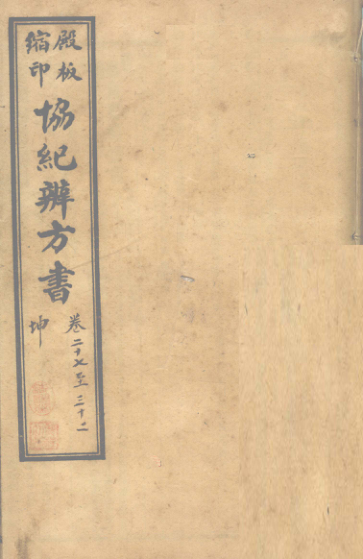 殿板
縮印
協紀辨方書
坤
卷二十七至三十二